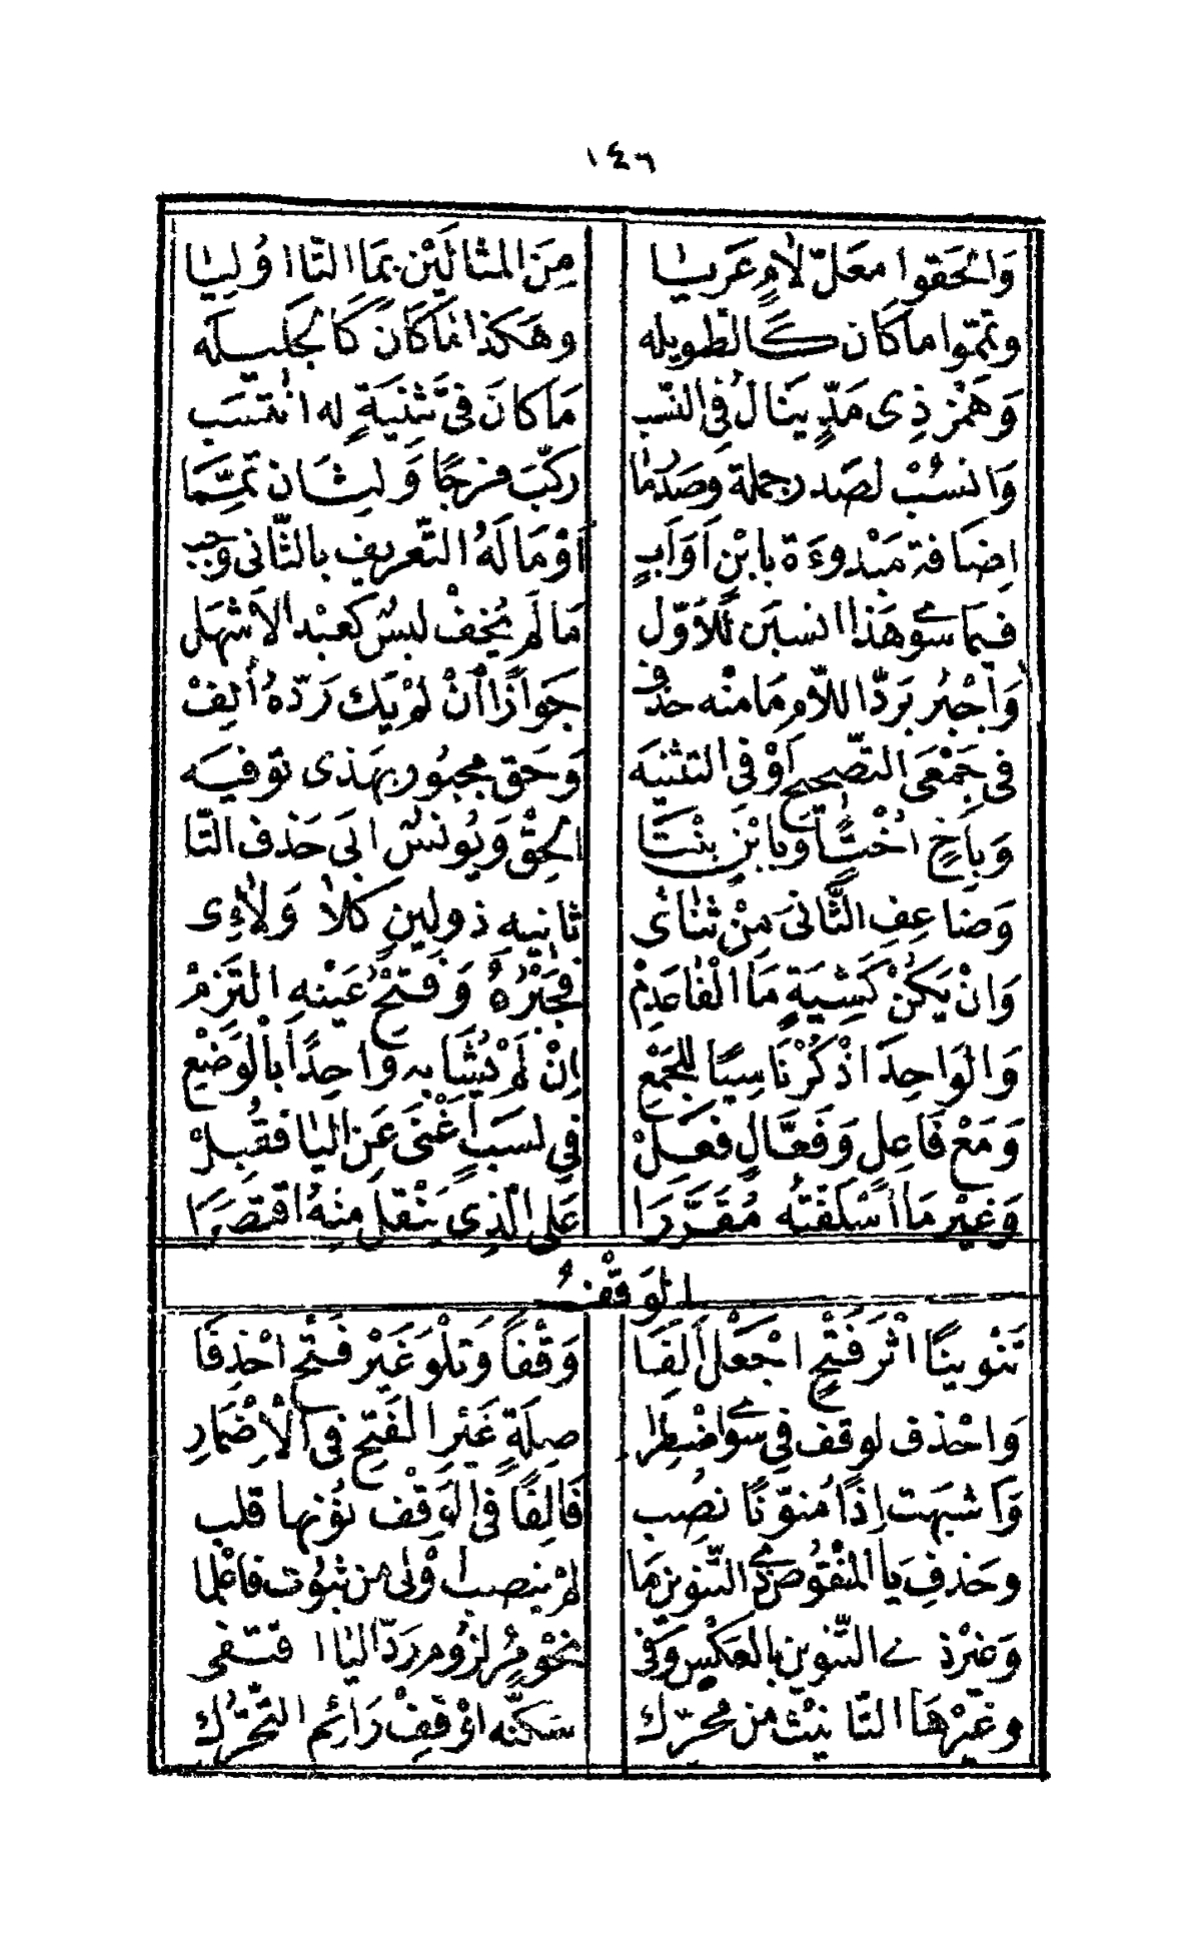 ١٤٦
وَالْحَقوا مُعَلّ لَامٍ عَرِيَا مِنَ المثالَيْن بَمَا التّا اُولِيَا
وتمّموا ما كان كَالطويله وهَكذا مَا كَانَ كَالجَلِيله
وَهَمْزُ ذِى مَدٍّ يَنَالُ فِى النّسب مَا كانَ فى تَثنِيَةٍ له انْتسَب
وَانسُبْ لصَدر جملة وصَدرِ مَا ركّبَ مزجًا وَلِثَان تمّمَا
اِضَافة مَبْدوءَة بِابْنٍ اَوْ اَبٍ اَوْ مَا لَهُ التّعريف بالثّانى وجب
فيمَا سوى هَذا انسبَن للأوّل مَا لَم يُخفْ لبسٌ كعبْد الاَشهَلى
وَاجْبُر بَردّ اللّامِ مَا منْه حذف جَوَازًا اَنْ لَمْ يَك رَدّهُ اُلِفْ
فى جَمْعَى التصْحِيحِ اَوْ فِى التثنيَه وَحَق مجبُور بهَذى توفيَه
وَبِاَخٍ اُخْتًا وبابْنٍ بنْتَا اَلحِقْ وَيُونسٌ ابَى حَذف التّا
وَضاعِفِ الثّانىَ مِنْ ثنَائى ثانيه ذو لينٍ كَلاَ وَلاَءِى
وَانْ يَكنْ كَشِيَةٍ مَا الْفَا عَدِمْ فجَبْرُهُ وَفتحُ عَيْنهِ التزمْ
وَالوَاحِدَ اذْكُرْ نَاسِبًا للجَمْعِ اِنْ لَمْ يُشَابه وَاحِدًا بالْوَضْعِ
وَمَعْ فَاعِلٍ وَفَعَّالٍ فَعِلْ فِى نسَبٍ اَغْنَى عَنِ اليَا فقُبِلْ
وَغَيْر مَا اَسْلَفْتُه مُقَرَّرَا عَلى الّذِى يُنْقل مِنهُ اقتصِرَا
الوَقْفُ
تَنْوينًا اثْرَ فَتْحٍ اجْعَلْ اَلِفَا وَقْفًا وَتِلْوَ غَيْر فَتْحٍ احْذِفَا
وَاحْذف لوقف فِى سوى اضْطرارِ صِلَةَ غَيْر الفَتْحِ فى الْاِضْمَارِ
وَاَشبَهَت اِذًا مُنوّنًا نُصِب فَاَلِفًا فِى الوَقْف نُوْنها قلب
وحَذفِ يَا المَنْقُوص ذى التّنوين مَا لمْ ينصب اَوْلى من ثبُوت فاعْلما
وَغيْر ذى التّنوين بالعَكْس وَفى نحْو مُرٍ لزُوم رَدّ اليَا اقتفى
وغَيْرَ هَا التّا نيْث من محرّك سَكّنه اوْ قِفْ رَائِم التّحَرُّكِ